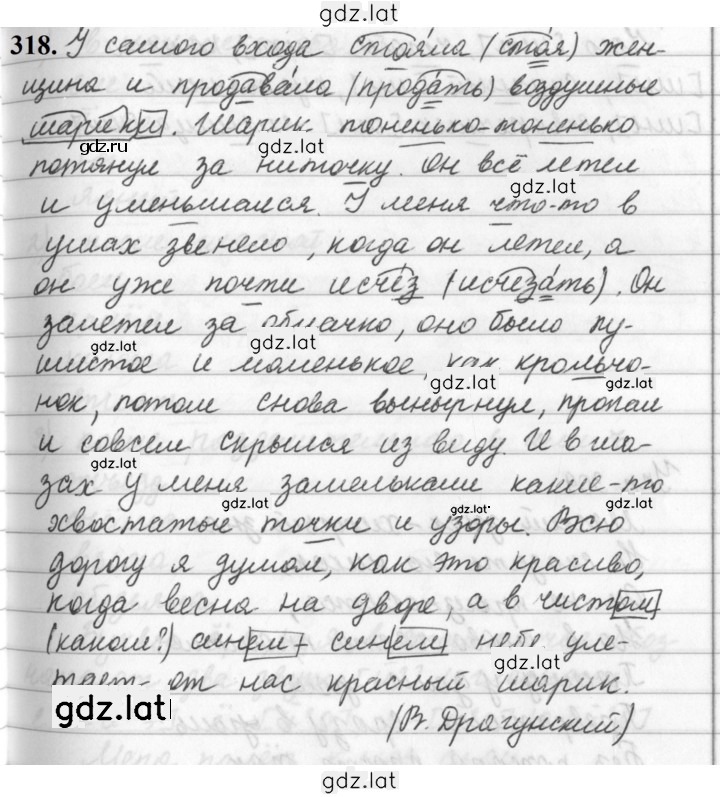 gdz.lat
318. У самого входа стоя́ла (сто́я) жен-
щина и продава́ла (прода́ть) воздушные
шарики. Шарик тоненько-тоненько
gdz.ru
потянул за ниточку. Он всё летел
gdz.lat
и уменьшался. У меня что-то в
gdz.lat
ушах звенело, когда он летел, а
он уже почти исче́з (исчеза́ть). Он
залетел за облачко, оно было пу-
gdz.lat gdz.lat
шистое и маленькое, как крольчо-
gdz.lat
нок, потом снова вынырнул, пропал
и совсем скрылся из виду. И в гла-
gdz.lat
зах у меня замелькали какие-то
gdz.lat gdz.lat
хвостатые точки и узоры. Всю
дорогу я думал, как это красиво,
когда весна на дворе, а в чистом
(каком?) синем-синем небе уле-
gdz.lat
тает от нас красный шарик.
gdz.lat
(В. Драгунский)
gdz.lat